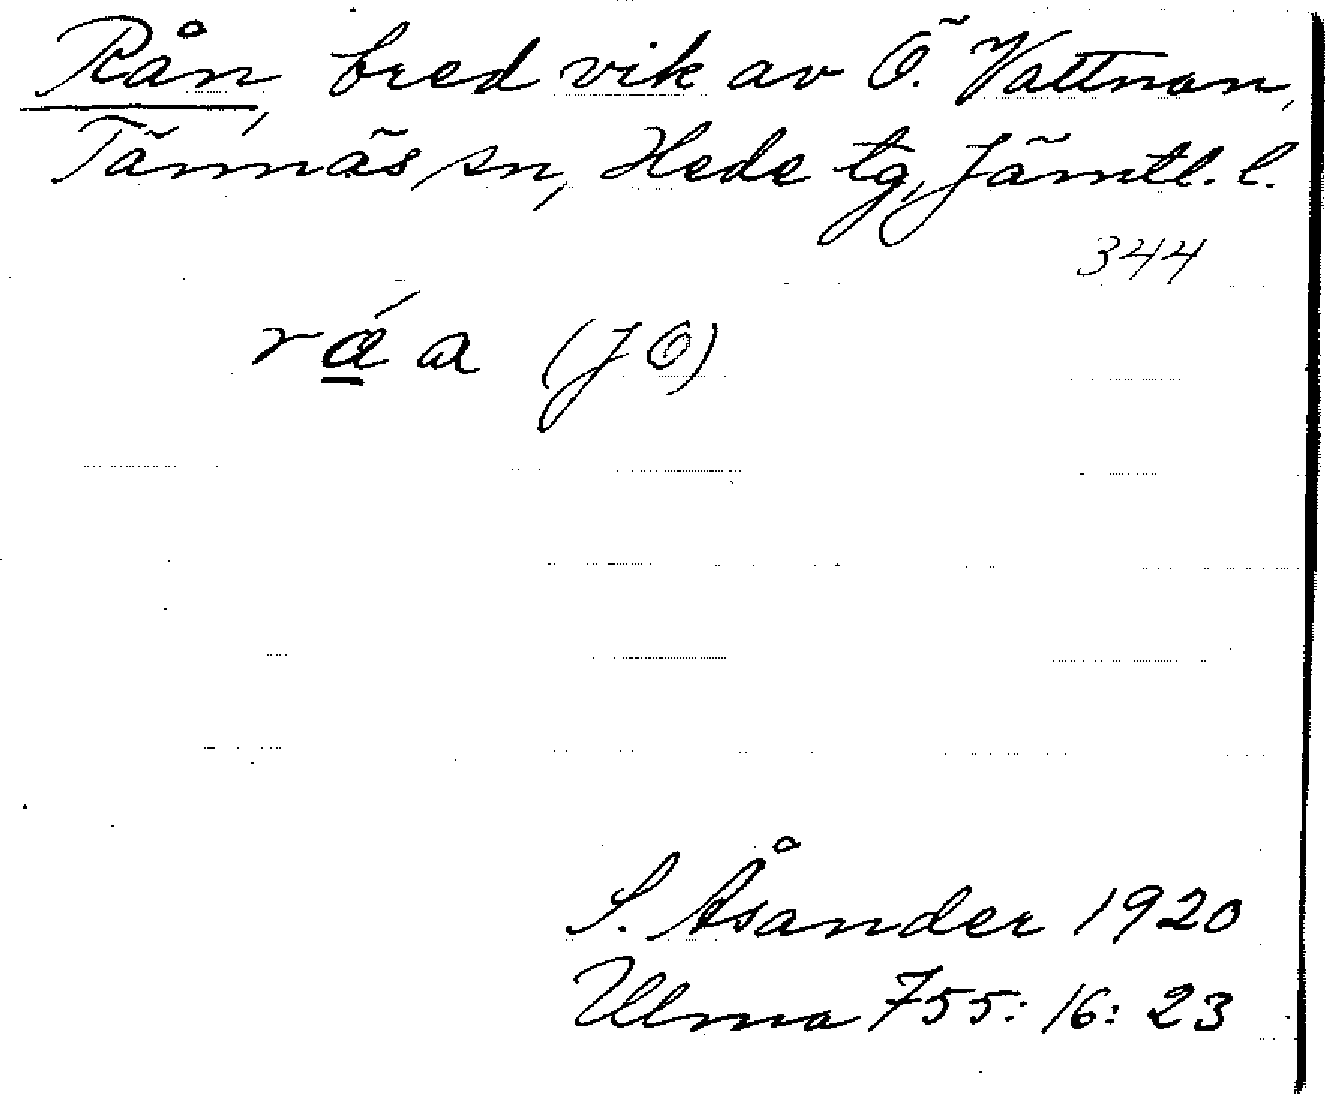 Rån, bred vik av Ö. Vattnan,
Tännäs sn, Hede tg, Jämtl. l.
344
råa (JÖ)
S. Åsander 1920
Ulma 755: 16: 23